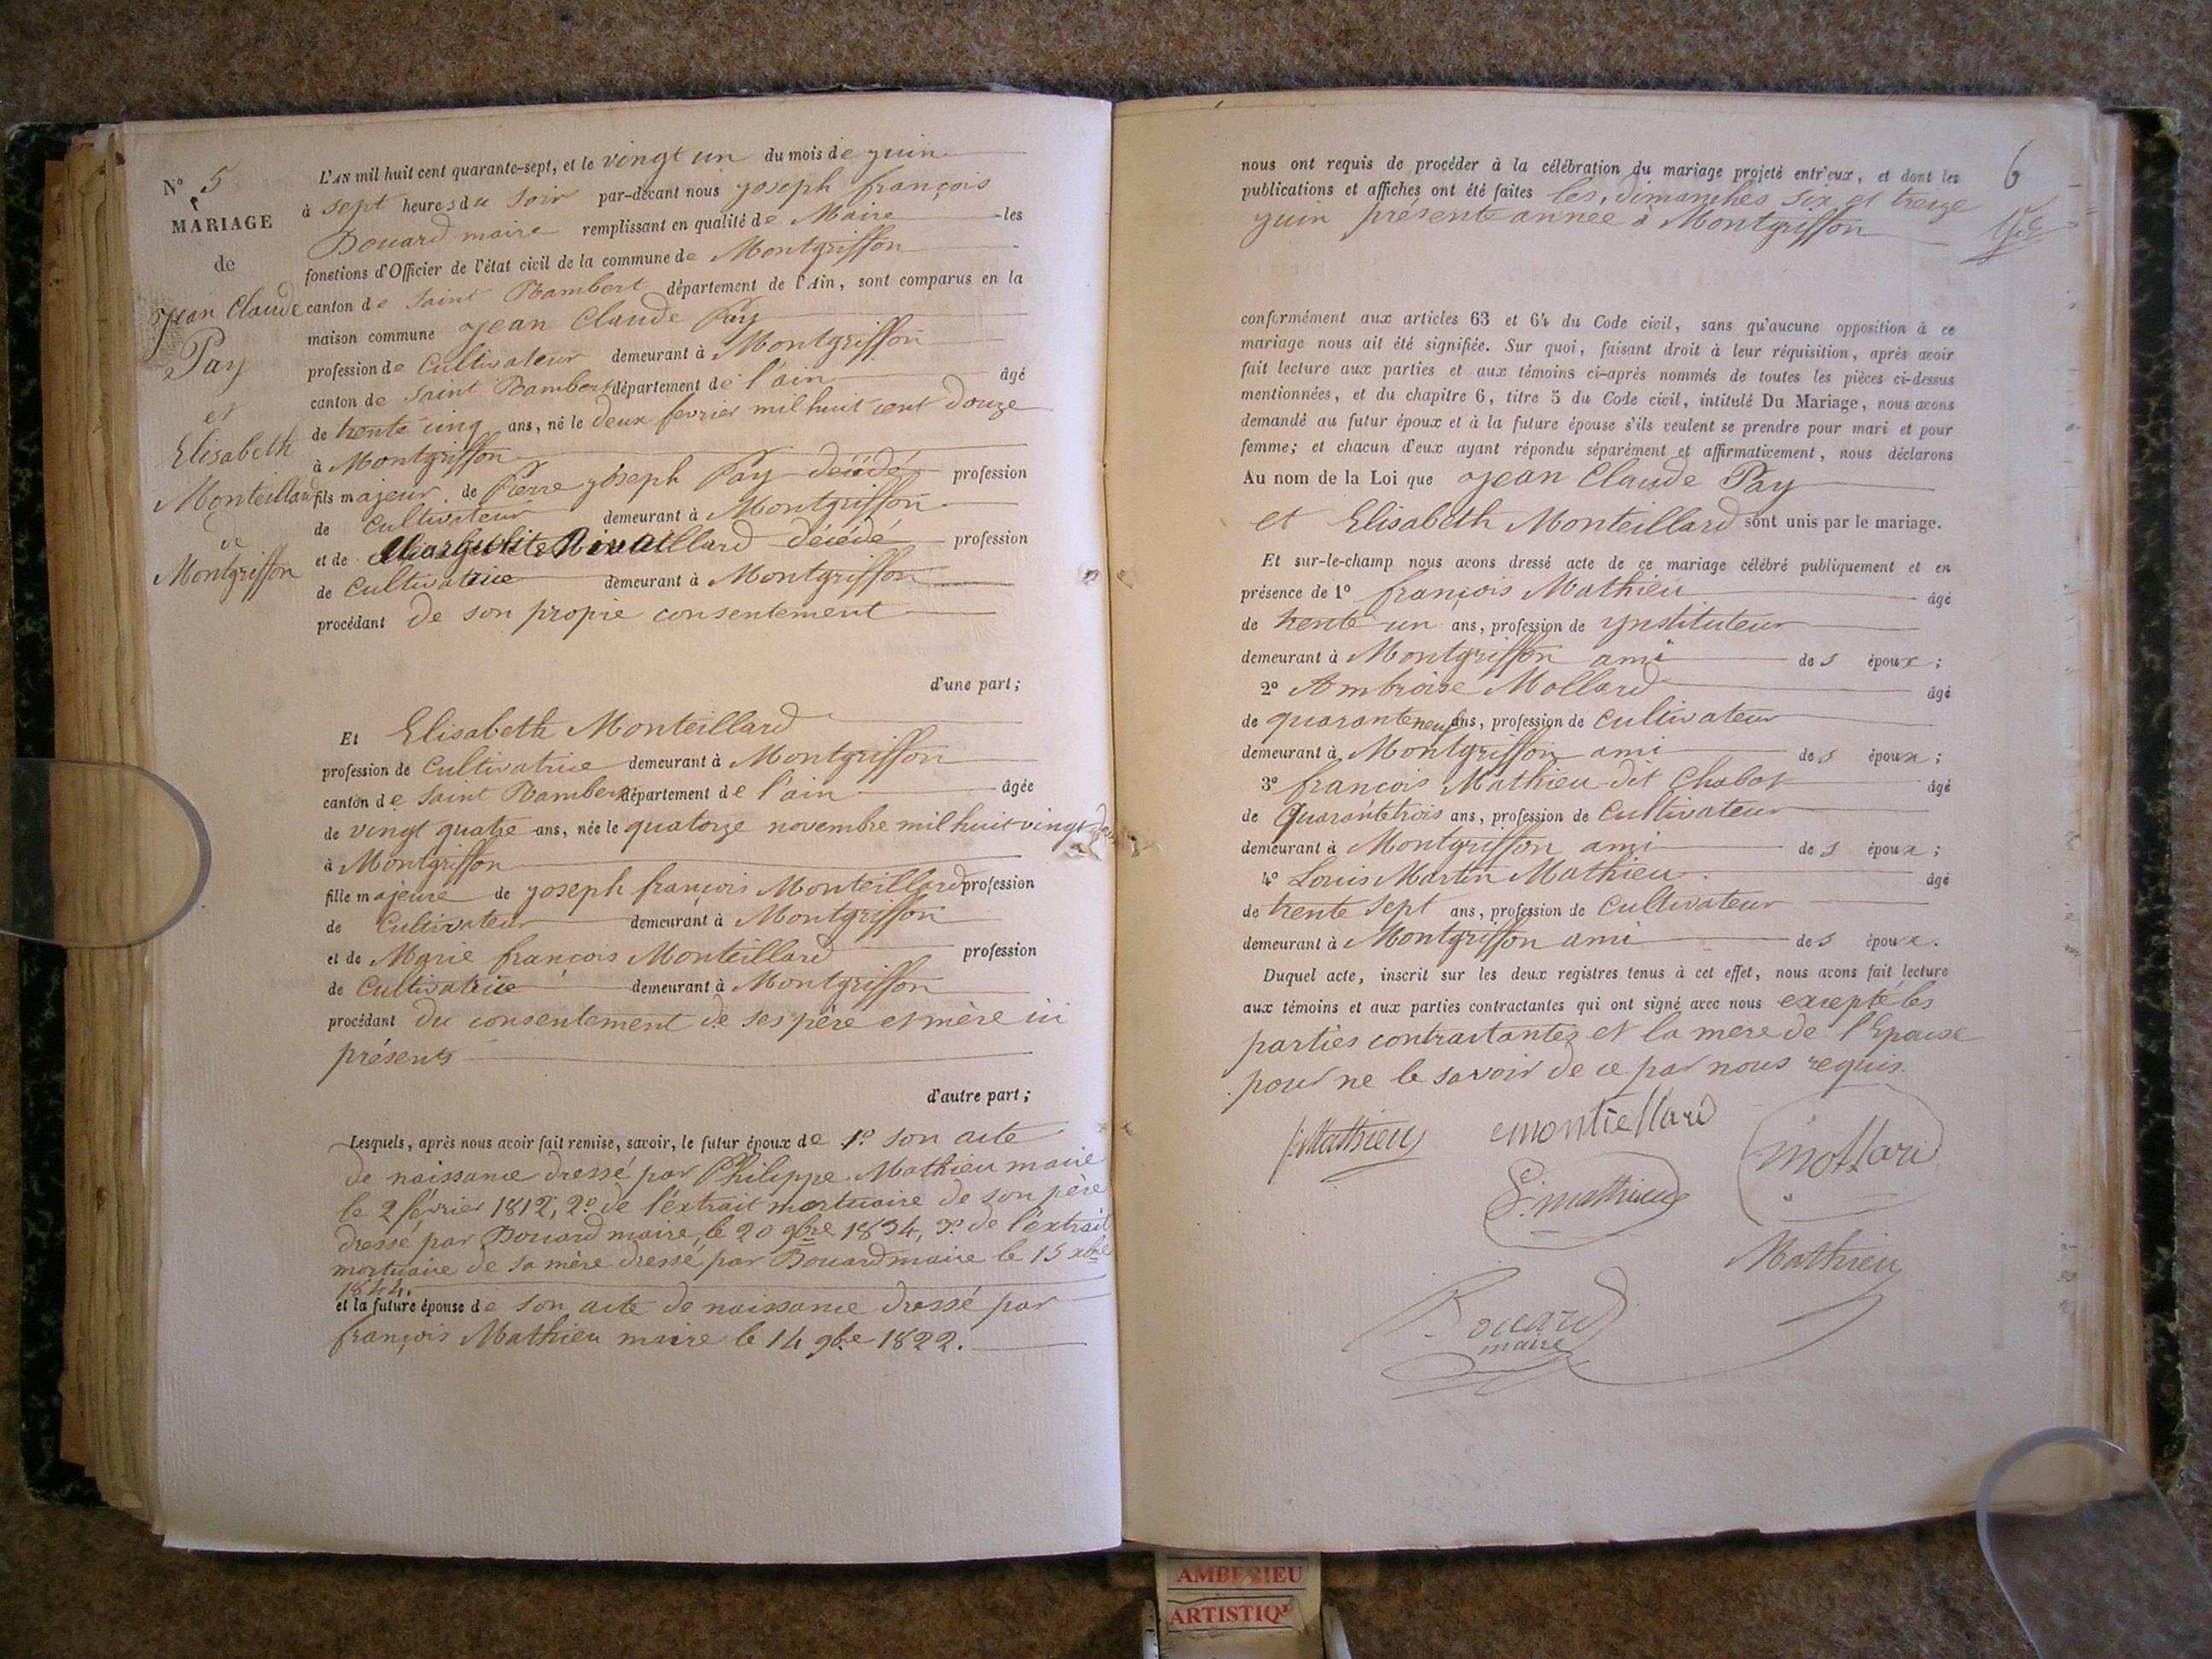 N° 5
MARIAGE
de
Jean Claude
Pay
et
Elisabeth
Monteillard
de
Montgriffon
L'AN mil huit cent quarante-sept, et le vingt un du mois de juin
à sept heures du soir par-devant nous joseph françois
Bouard maire remplissant en qualité de Maire les
fonctions d'Officier de l'état civil de la commune de Montgriffon
canton de Saint Rambert département de l'Ain, sont comparus en la
maison commune Jean Claude Pay
profession de Cultivateur demeurant à Montgriffon
canton de Saint Rambert département de l'ain âgé
de trente cinq ans, né le deux fevrier mil huit cent douze
à Montgriffon
fils majeur de Pierre joseph Pay décédé profession
de Cultivateur demeurant à Montgriffon
et de décédé profession
de Cultivatrice demeurant à Montgriffon
procédant de son propre consentement
d'une part;
Et Elisabeth Monteillard
profession de Cultivatrice demeurant à Montgriffon
canton de Saint Rambert département de l'ain âgée
de vingt quatre ans, née le quatorze novembre mil huit vingt deux
à Montgriffon
fille majeure de joseph françois Monteillard profession
de Cultivateur demeurant à Montgriffon
et de Marie françois Monteillard profession
de Cultivatrice demeurant à Montgriffon
procédant du consentement de ses père et mère ici
présents
d'autre part;
Lesquels, après nous avoir fait remise, savoir, le futur époux de 1° son acte
de naissance dressé par Philippe Mathieu maire
le 2 février 1812, 2° de l'extrait mortuaire de son père
dressé par Bouard maire, le 20 9bre 1834, 3° de l'extrait
mortuaire de sa mère dressé par Bouard maire le 15 xbre
1844.
et la future épouse de son acte de naissance dressé par
françois Mathieu maire le 14 9bre 1822.
6
nous ont requis de procéder à la célébration du mariage projeté entr'eux, et dont les
publications et affiches ont été faites les, dimanches six et treize
juin présente année à Montgriffon
conformément aux articles 63 et 64 du Code civil, sans qu'aucune opposition à ce
mariage nous ait été signifiée. Sur quoi, faisant droit à leur réquisition, après avoir
fait lecture aux parties et aux témoins ci-après nommés de toutes les pièces ci-dessus
mentionnées, et du chapitre 6, titre 5 du Code civil, intitulé Du Mariage, nous avons
demandé au futur époux et à la future épouse s'ils veulent se prendre pour mari et pour
femme; et chacun d'eux ayant répondu séparément et affirmativement, nous déclarons
Au nom de la Loi que Jean Claude Pay
et Elisabeth Monteillard sont unis par le mariage.
Et sur-le-champ nous avons dressé acte de ce mariage célébré publiquement et en
présence de 1° françois Mathieu âgé
de trente un ans, profession de ynstituteur
demeurant à Montgriffon ami des époux;
2° Ambroise Mollard âgé
de quarante neuf ans, profession de Cultivateur
demeurant à Montgriffon ami des époux;
3° françois Mathieu dit Chabot âgé
de Quarante trois ans, profession de Cultivateur
demeurant à Montgriffon ami des époux;
4° Louis Martin Mathieu âgé
de trente sept ans, profession de Cultivateur
demeurant à Montgriffon ami des époux.
Duquel acte, inscrit sur les deux registres tenus à cet effet, nous avons fait lecture
aux témoins et aux parties contractantes qui ont signé avec nous excepté les
parties contractantes et la mere de l'Epouse
pour ne le savoir de ce par nous requis.
Mathieu montiellard mollard
mathieu
Mathieu
Bouard
maire
AMBERIEU
ARTISTIQ